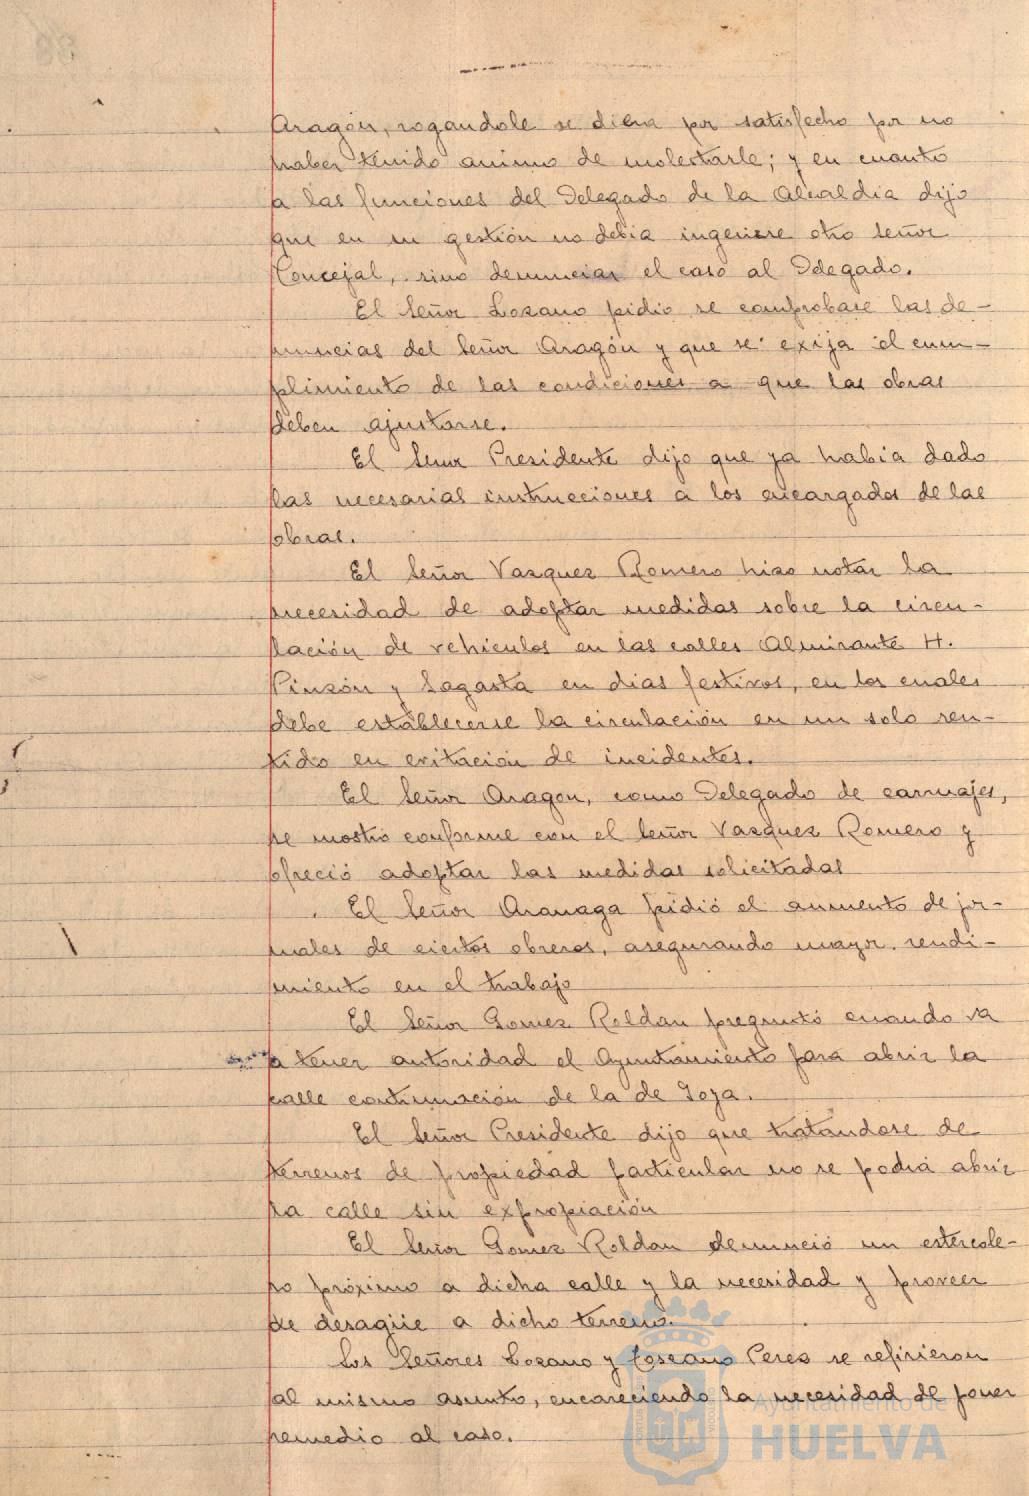 Aragón, rogandole se diera por satisfecho por no
haber tenido animo de molestarle; y en cuanto
a las funciones del Delegado de la Alcaldia dijo
que en su gestión no debia ingerirse otro Señor
Concejal, sino denunciar el caso al Delegado.
El Señor Lozano pidio se comprobase las de-
nuncias del Señor Aragón y que se exija el cum-
plimiento de las condiciones a que las obras
deben ajustarse.
El Señor Presidente dijo que ya habia dado
las necesarias instrucciones a los encargados de las
obras.
El Señor Vazquez Romero hizo notar la
necesidad de adoptar medidas sobre la circu-
lación de vehiculos en las calles Almirante H.
Pinzón y Sagasta en dias festivos, en los cuales
debe establecerse la circulación en un solo sen-
tido en evitación de incidentes.
El Señor Aragon, como Delegado de carruajes,
se mostró conforme con el Señor Vazquez Romero y
ofreció adoptar las medidas solicitadas
El Señor Aranaga pidió el aumento de jor-
nales de ciertos obreros, asegurando mayor rendi-
miento en el trabajo
El Señor Gomez Roldan preguntó cuando va
a tener autoridad el Ayuntamiento para abrir la
calle continuación de la de Goya.
El Señor Presidente dijo que tratandose de
terrenos de propiedad particular no se podrá abrir
la calle sin expropiación
El Señor Gomez Roldan denunció un estercole-
ro próximo a dicha calle y la necesidad y proveer
de desagüe a dicho terreno.
Los Señores Lozano y Toscano Perez se refirieron
al mismo asunto, encareciendo la necesidad de poner
remedio al caso.
Ayuntamiento de
HUELVA